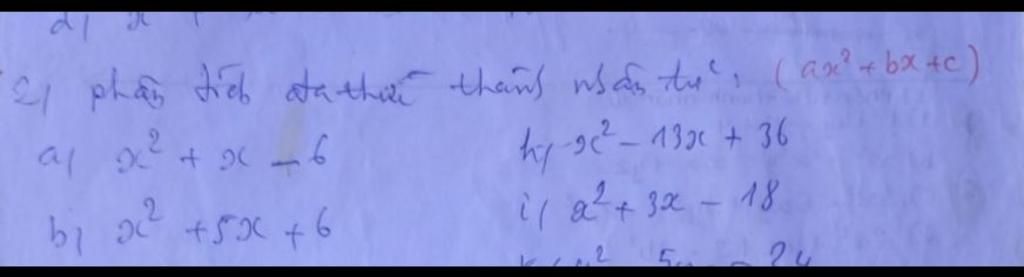 2) phân tích đa thức thành nhân tử: (ax² + bx + c)
a) x² + x - 6
h) x² - 13x + 36
b) x² + 5x + 6
i) x² + 3x - 18